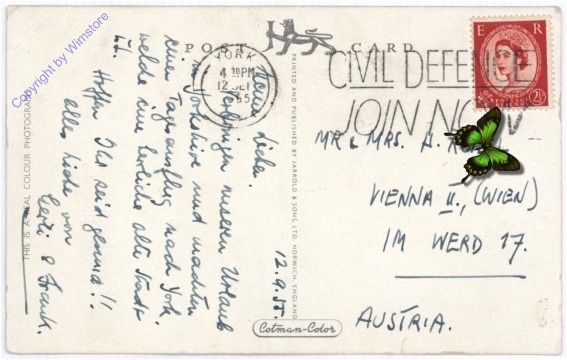 Copyright by Wimstore
POST CARD
YORK
4 30PM
12 SEP
1955
CIVIL DEFENCE
JOIN NOW
E R
2½
Meine Lieben.
Verbringen unseren Urlaub
in Yorkshire und machten
eine Tagesausflug nach York
welche eine herrliche alte Stadt
ist.
Hoffen Ihr seid gesund!!
alles liebe von
& Frank.
12.9.55.
MR & MRS. H.
VIENNA II., (WIEN)
IM WERD 17.
AUSTRIA.
THIS IS A REAL COLOUR PHOTOGRAPH
PRINTED AND PUBLISHED BY JARROLD & SONS, LTD. NORWICH, ENGLAND
Cotman-Color